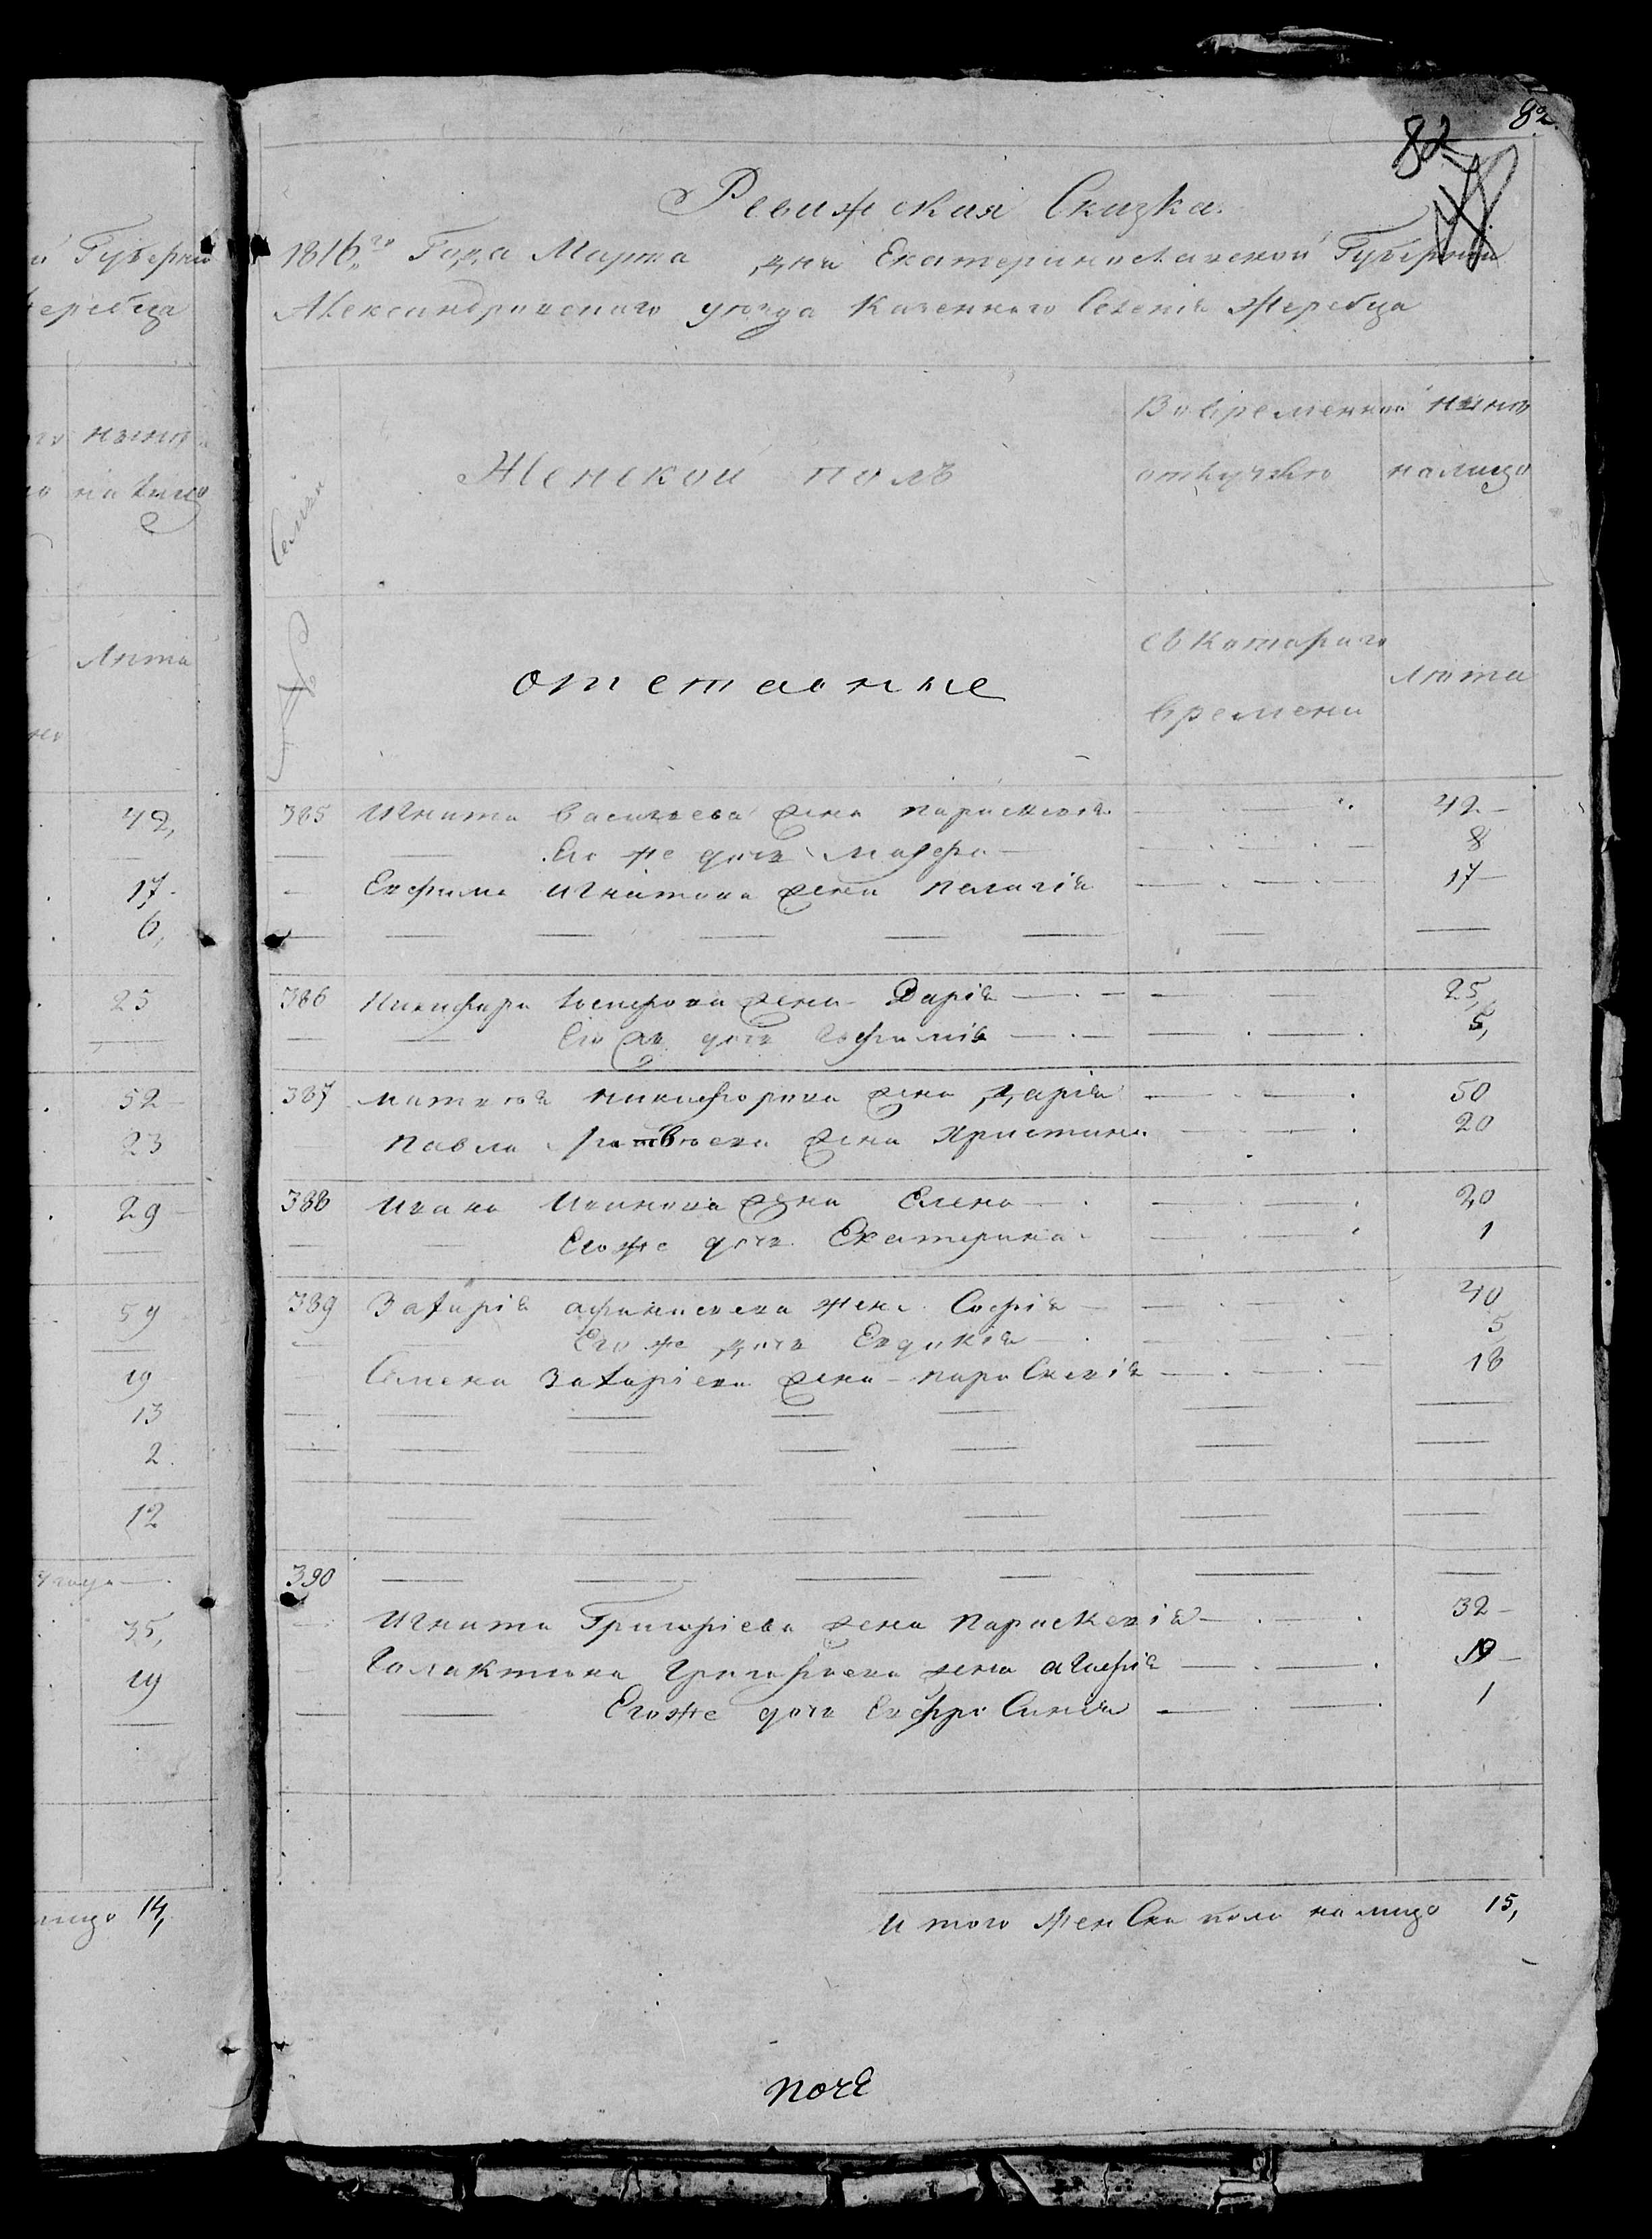 82.
82
Ревижская Сказка
1816го Года Марта дня Екатеринославской Губерніи
Александровскаго уѣзда казеннаго Селенія Жеребца
Семьи
Женской полъ
Во временной отлучкѣ
нынѣ на лицо
№
отставные
съ котораго времени
лѣта
385 Игната Васильева жена параскевія 42
Его же дочь 8
Евфима Игнатова жена пелагія 17
386 Никифора Іосифова жена Дарія 25,
Его же дочь Евфимія 5,
387 матвѣя никифорова жена Дарія 50
павла матвѣева жена Христина 20
388 Ивана Иванова жена Елена 20
Его же дочь Екатерина 1
389 Захарія афанасьева жена Софія 40
Его же дочь Евдокія 5
Семена Захаріева жена параскевія 18
390
Игната Григоріева жена параскевія 32
Галактіона Григоріева жена агафія 19
Его же дочь Евфросинія 1
И того женска пола на лицо 15,
Губерніи
жеребца
нынѣ
на лицо
лѣта
42,
17
6,
25
52
23
29
59
19
13
2
12
года
35,
19
лицо 14,